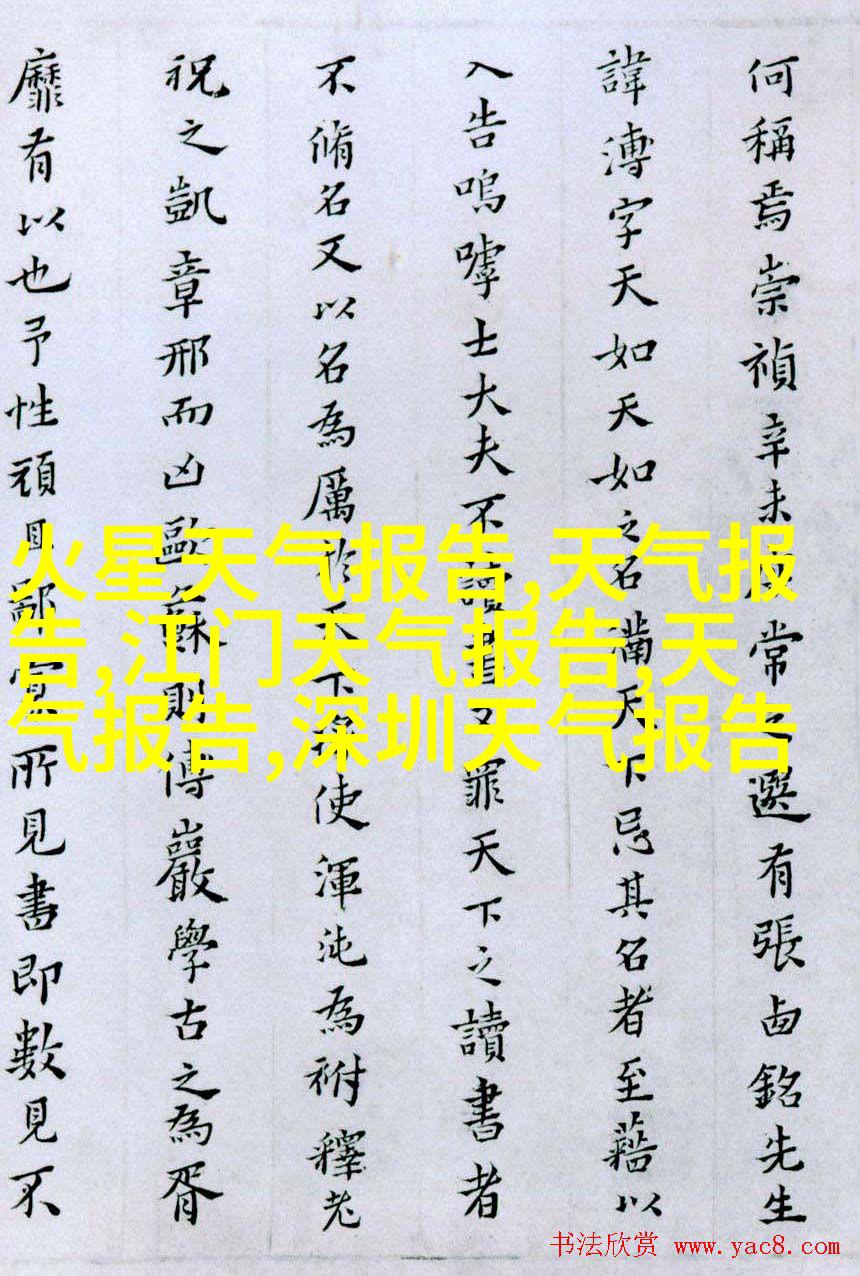 何稱焉崇禎辛未庶常之選有張𠧧銘先生
諱溥字天如天如之名滿天下忌其名者至藉以
入告嗚嘑士大夫不讀書又罪天下之讀書者
不脩名又以名為厲於天下將使渾沌為祔釋老
祝之凱章邢而凶歐蘇則傅巖學古之為胥
靡有以也予性頑且鄙寡所見書即數見不
火星天气报告,天气报
告,江门天气报告,天
气报告,深圳天气报告
书法欣赏 www.yac8.com